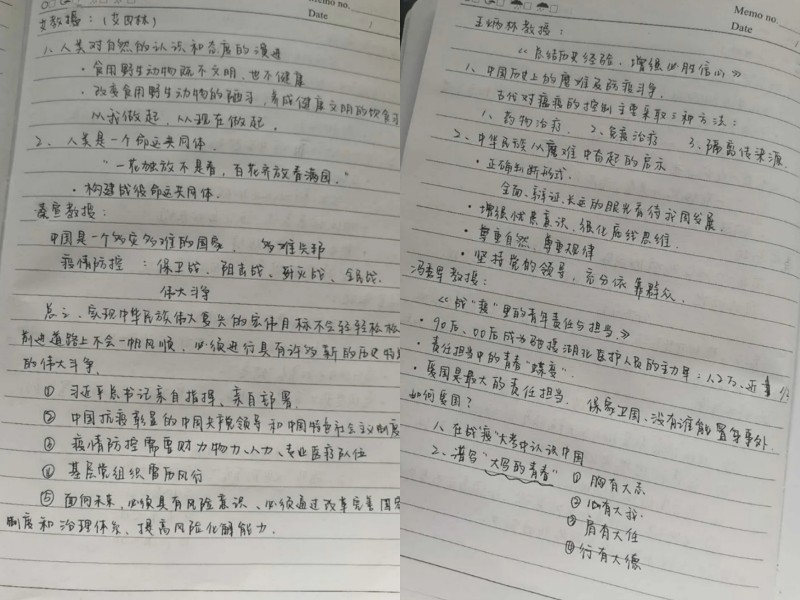 Memo no.
Date 1
艾教授:(艾四林)
1、人类对自然的认识和态度的演进
· 食用野生动物既不文明,也不健康
· 改变食用野生动物的陋习,养成健康文明的饮食习
从我做起,从现在做起。
2、人类是一个命运共同体.
"一花独放不是春,百花齐放春满园."
· 构建战役命运共同体.
秦宣教授:
中国是一个多灾多难的国家. 多难兴邦
疫情防控:保卫战、阻击战、歼灭战、全民战.
伟大斗争
总之,实现中华民族伟大复兴的宏伟目标不会轻轻松松
前进道路上不会一帆风顺,必须进行具有许多新的历史特
的伟大斗争.
① 习近平总书记亲自指挥、亲自部署.
② 中国抗疫彰显的中国共产党领导和中国特色社会主义制度
③ 疫情防控需要财力物力、人力、专业医疗队伍
④ 基层党组织雷厉风行
⑤ 面向未来,必须具有风险意识、必须通过改革完善国家
制度和治理体系、提高风险化解能力.
Memo no.
Date 1
王炳林教授:
《总结历史经验,增强必胜信心》
1、中国历史上的磨难及防疫斗争.
古代对瘟疫的控制主要采取三种方法:
1、药物治疗. 2、免疫治疗 3、隔离传染源.
2、中华民族从磨难中奋起的启示
· 正确判断形式.
全面、辩证、长远的眼光看待我国发展.
· 增强忧患意识,强化底线思维.
· 尊重自然、尊重规律
· 坚持党的领导,充分依靠群众.
冯秀军教授:
《战"疫"里的青年责任与担当》
· 90后、00后成为驰援湖北医护人员的主力军:1.2万、近
· 责任担当中的青春"蝶变".
· 爱国是最大的责任担当. 保家卫国,没有谁能置身事外.
如何爱国?
1、在战"疫"大考中认识中国
2、谱写"大写的青春" ① 胸有大志
② 心有大我.
③ 肩有大任
④ 行有大德